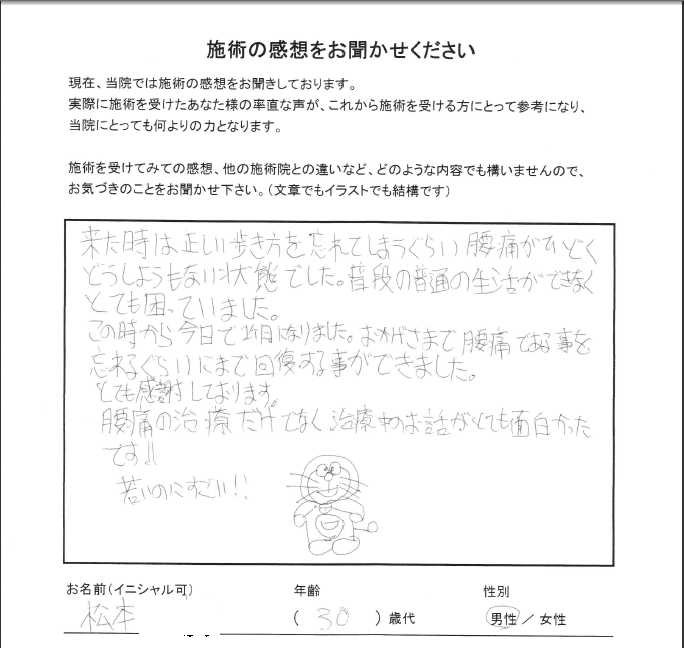 施術の感想をお聞かせください
現在、当院では施術の感想をお聞きしております。
実際に施術を受けたあなた様の率直な声が、これから施術を受ける方にとって参考になり、
当院にとっても何よりの力となります。
施術を受けてみての感想、他の施術院との違いなど、どのような内容でも構いませんので、
お気づきのことをお聞かせ下さい。(文章でもイラストでも結構です)
来た時は正しい歩き方を忘れてしまうぐらい腰痛がひどく
どうしようもない状態でした。普段の普通の生活ができなく
とても困っていました。
この時から今日で 日になりました。おかげさまで腰痛である事を
忘れるぐらいにまで回復する事ができました。
とても感謝しております。
腰痛の治療だけでなく治療中のお話がとても面白かった
です!!
若いのにすごい!!
お名前(イニシャル可) 年齢 性別
松本 (30)歳代 男性/女性